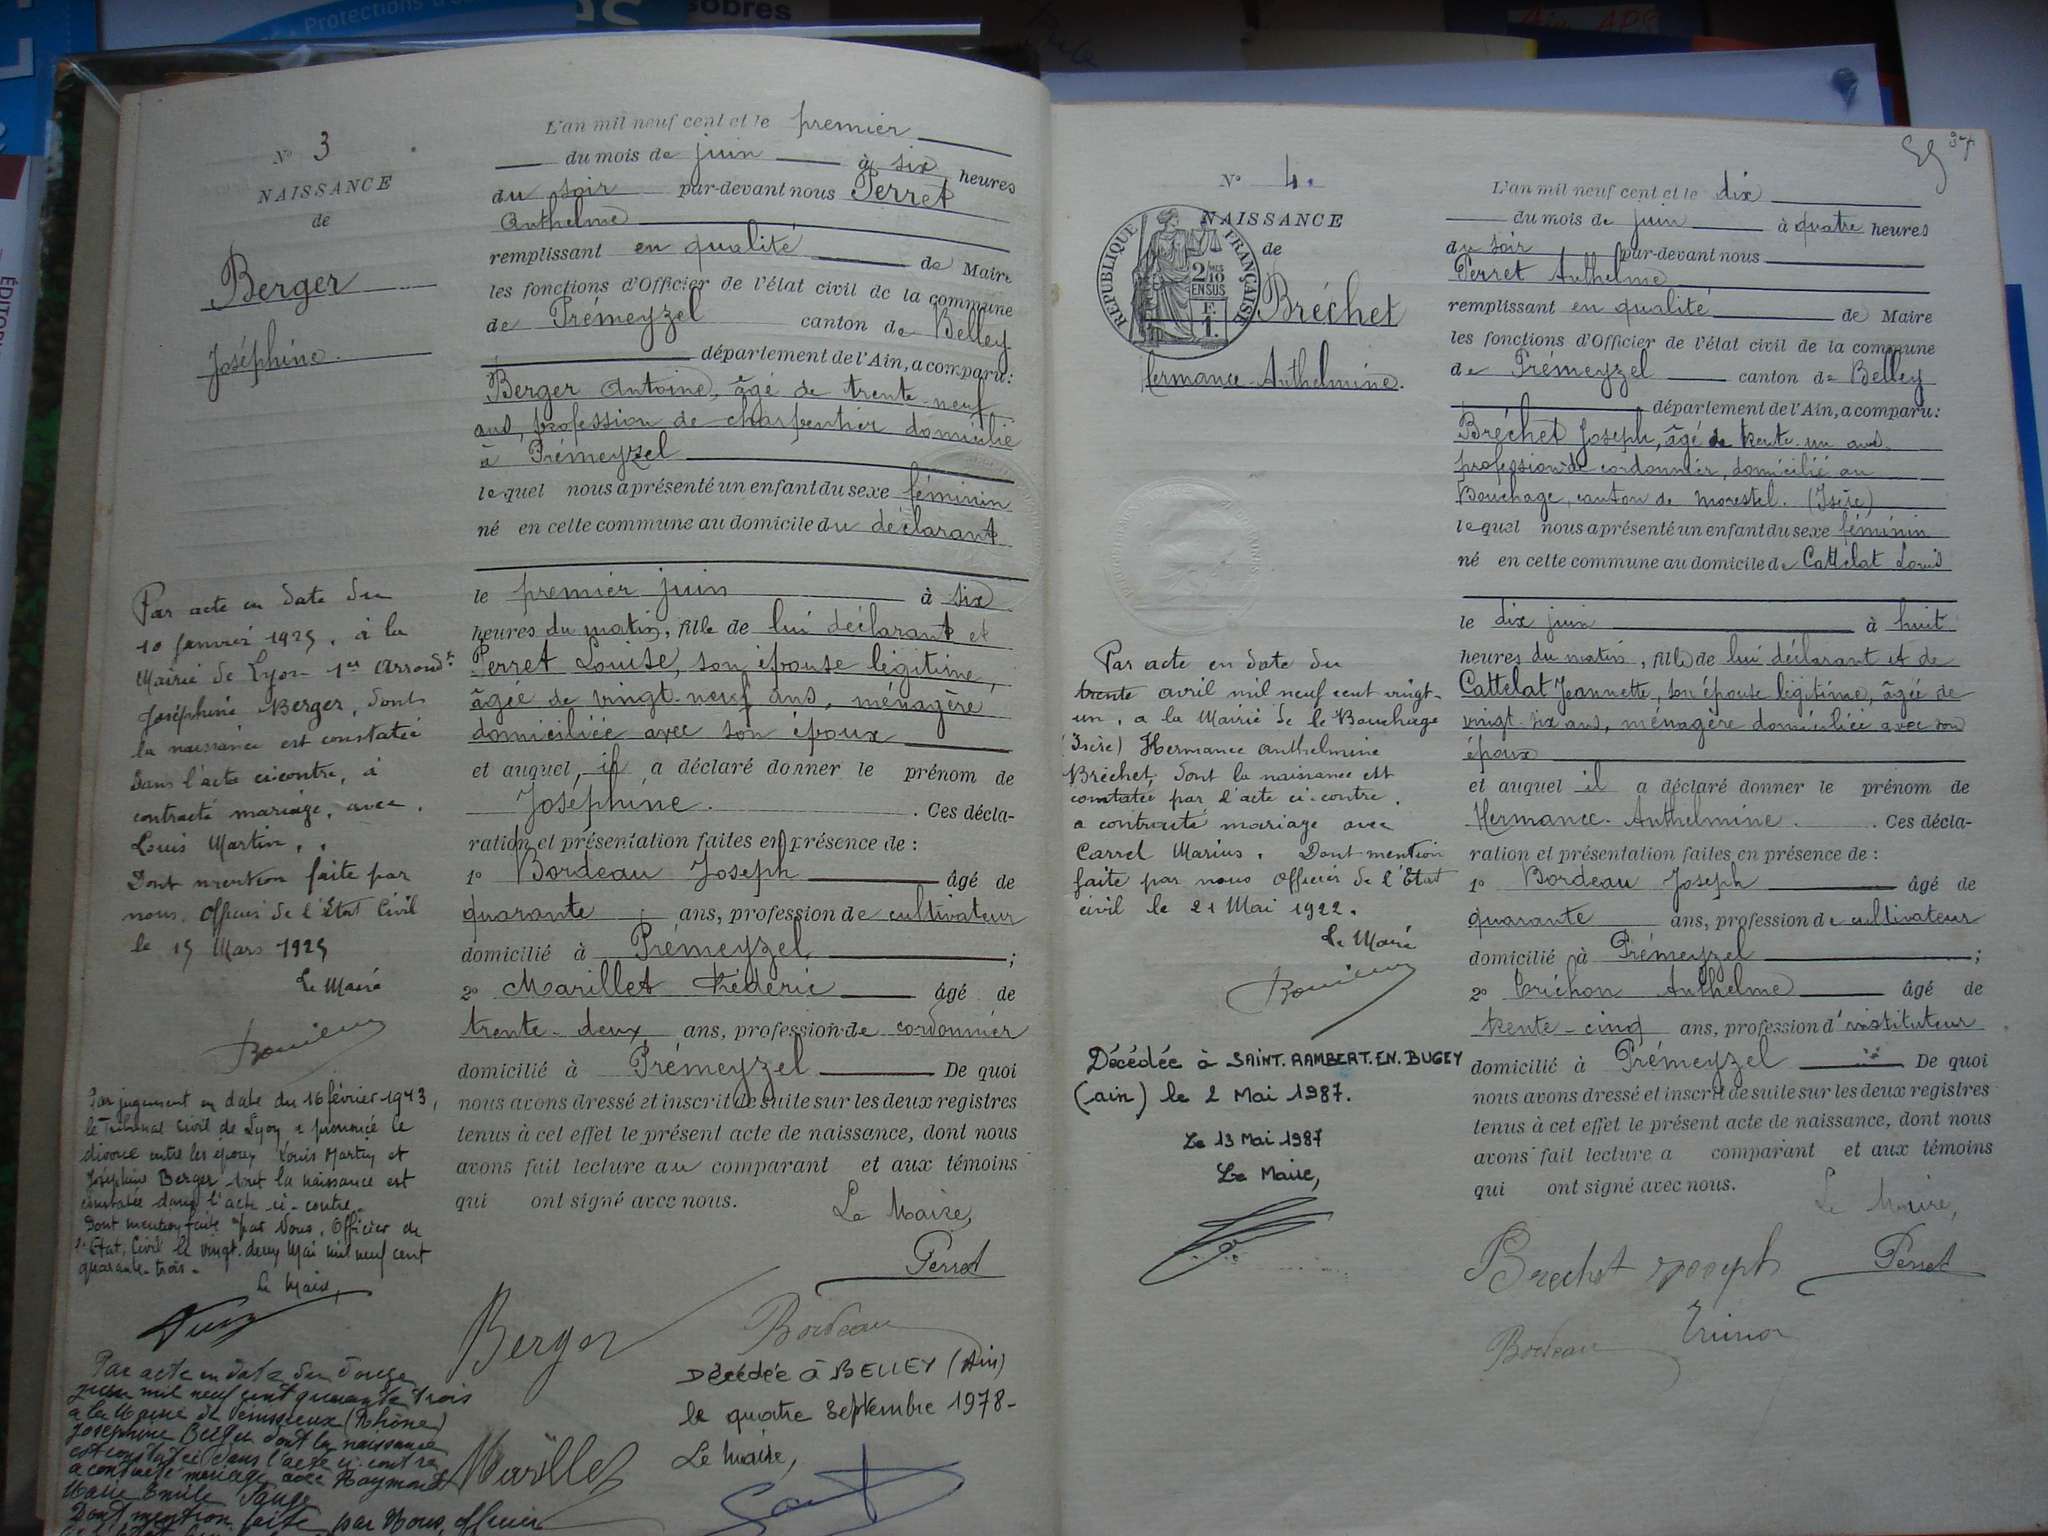 Protections
sobres
ÉDITORI
N° 3
NAISSANCE
de
Berger
Joséphine.
L'an mil neuf cent et le premier
du mois de juin à six heures
du soir par-devant nous Perret
Anthelme
remplissant en qualité de Maire
les fonctions d'Officier de l'état civil de la commune
de Prémeyzel canton de Belley
département de l'Ain, a comparu:
Berger Antoine, âgé de trente-neuf
ans, profession de charpentier domicilié
à Prémeyzel
lequel nous a présenté un enfant du sexe féminin
né en cette commune au domicile du déclarant
le premier juin à six
heures du matin, fille de lui déclarant et
Perret Louise, son épouse légitime,
âgée de vingt-neuf ans, ménagère
domiciliée avec son époux
et auquel, il a déclaré donner le prénom de
Joséphine. Ces décla-
ration et présentation faites en présence de :
1° Bordeau Joseph âgé de
quarante ans, profession de cultivateur
domicilié à Prémeyzel ;
2° Marillet Frédéric âgé de
trente-deux ans, profession de cordonnier
domicilié à Prémeyzel De quoi
nous avons dressé et inscrit de suite sur les deux registres
tenus à cet effet le présent acte de naissance, dont nous
avons fait lecture au comparant et aux témoins
qui ont signé avec nous.
Le Maire,
Perret
Berger
Bordeau
Marillet
Décédée à BELLEY (Ain)
le quatre Septembre 1978-
Le Maire,
Par acte en date du
10 Janvier 1925, à la
Mairie de Lyon 1er Arrondt
Joséphine Berger, dont
la naissance est constatée
dans l'acte ci-contre, à
contracté mariage, avec
Louis Martin,
Dont mention faite par
nous, Officier de l'Etat Civil
le 15 Mars 1925
Le Maire
Par jugement en date du 16 février 1943,
le Tribunal Civil de Lyon a prononcé le
divorce entre les époux Louis Martin et
Joséphine Berger dont la naissance est
constatée dans l'acte ci-contre.
Dont mention faite par Nous, Officier de
l'Etat Civil le vingt-deux Mai mil neuf cent
quarante-trois-
Le Maire,
Par acte en date du douze
juin mil neuf cent quarante trois
à la Mairie de Vénissieux (Rhône)
Joséphine Berger dont la naissance
est constatée dans l'acte ci-contre
a contracté mariage avec Raymond
Marie Emile
Dont mention faite par Nous, officier
N° 4.
NAISSANCE
de
RÉPUBLIQUE FRANÇAISE
2/10 EN SUS
F. 1.
Bréchet
Hermance-Anthelmine.
L'an mil neuf cent et le dix
du mois de juin à quatre heures
du soir par-devant nous
Perret Anthelme
remplissant en qualité de Maire
les fonctions d'Officier de l'état civil de la commune
de Prémeyzel canton de Belley
département de l'Ain, a comparu:
Bréchet Joseph, âgé de trente-un ans
profession de cordonnier, domicilié au
Bouchage, canton de Morestel. (Isère)
lequel nous a présenté un enfant du sexe féminin
né en cette commune au domicile de Cattelat Louis
le dix juin à huit
heures du matin, fille de lui déclarant et de
Cattelat Jeannette, son épouse légitime, âgée de
vingt-six ans, ménagère domiciliée avec son
époux
et auquel il a déclaré donner le prénom de
Hermance-Anthelmine. Ces décla-
ration et présentation faites en présence de :
1° Bordeau Joseph âgé de
quarante ans, profession de cultivateur
domicilié à Prémeyzel ;
2° Anthelme âgé de
trente-cinq ans, profession d'instituteur
domicilié à Prémeyzel De quoi
nous avons dressé et inscrit de suite sur les deux registres
tenus à cet effet le présent acte de naissance, dont nous
avons fait lecture a comparant et aux témoins
qui ont signé avec nous.
Le Maire,
Brechet Joseph
Perret
Bordeau
Par acte en date du
trente avril mil neuf cent vingt-
un, a la Mairie de le Bouchage
(Isère) Hermance Anthelmine
Bréchet, dont la naissance est
constatée par l'acte ci-contre,
a contracté mariage avec
Carrel Marius. Dont mention
faite par nous Officier de l'Etat
civil le 21 Mai 1922.
Le Maire
Décédée à SAINT.RAMBERT.EN.BUGEY
(ain) le 2 Mai 1987.
Le 13 Mai 1987
Le Maire,